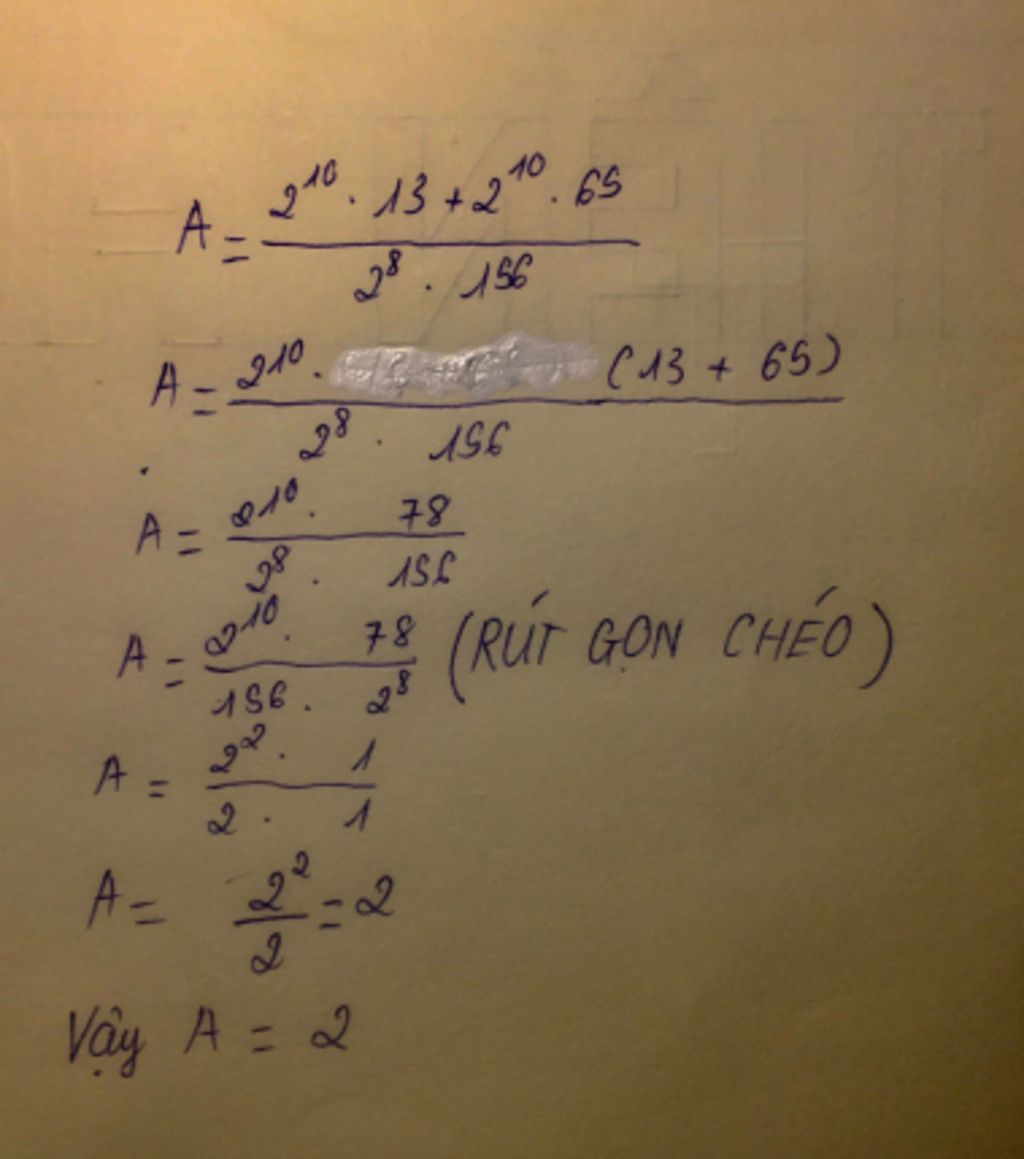 A = \frac{2^{10} \cdot 13 + 2^{10} \cdot 65}{2^8 \cdot 156}
A = \frac{2^{10} \cdot (13 + 65)}{2^8 \cdot 156}
A = \frac{2^{10} \cdot 78}{2^8 \cdot 156}
A = \frac{2^{10} \cdot 78}{156 \cdot 2^8} (RÚT GỌN CHÉO)
A = \frac{2^2 \cdot 1}{2 \cdot 1}
A = \frac{2^2}{2} = 2
Vậy A = 2